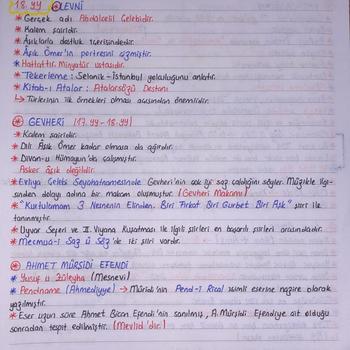 18. yy LEVNİ
* Gerçek adı Abdülcelil Çelebidir.
* Kalem şairidir.
* Âşıklarla dostluk içerisindedir.
* Âşık Ömer'in portresini çizmiştir.
* Hattattır. Minyatür ustasıdır.
* Tekerleme : Selanik - İstanbul yolculuğunu anlatır.
* Kitab-ı Atalar : Atalarsözü Destanı
↳ Türlerinin ilk örnekleri olması açısından önemlidir.
* GEVHERİ (17. yy - 18. yy)
* Kalem şairidir.
* Dili Âşık Ömer kadar olmasa da ağırdır.
* Divan-ı Hümayun'da çalışmıştır.
Asker âşık değildir.
* Evliya Çelebi Seyahatnamesinde Gevheri'nin çok iyi saz çaldığını söyler. Müzikle ilgi-
sinden dolayı adına bir makam oluşmuştur. (Gevheri Makamı)
* "Kurtulamam 3 Nesnenin Elinden. Biri Firkat Biri Gurbet Biri Aşk" şiiri ile
tanınmıştır.
* Uyvar Seferi ve II. Viyana Kuşatması ile ilgili şiirleri en başarılı şiirleri arasındadır.
* Mecmua-i Saz ü Söz'de iki şiiri vardır.
* AHMET MÜRŞİDİ EFENDİ
* Yusuf u Züleyha (Mesnevi)
* Pendname (Ahmediyye) → Müridi'nin Pend-i Rical isimli eserine nazire olarak
yazılmıştır.
* Eser uzun süre Ahmet Bican Efendi'nin sanılmış, A. Mürşidi Efendiye ait olduğu
sonradan tespit edilmiştir. (Mevlid'dir.)